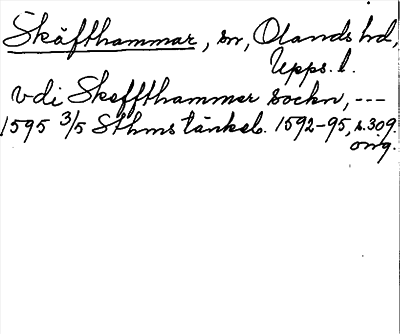 Skäfthammar, sn, Olands hd,
Upps. l.
vdi Skeffthammer sockn, ---
1595 3/5 Sthms tänkeb. 1592-95, s. 309.
orig.